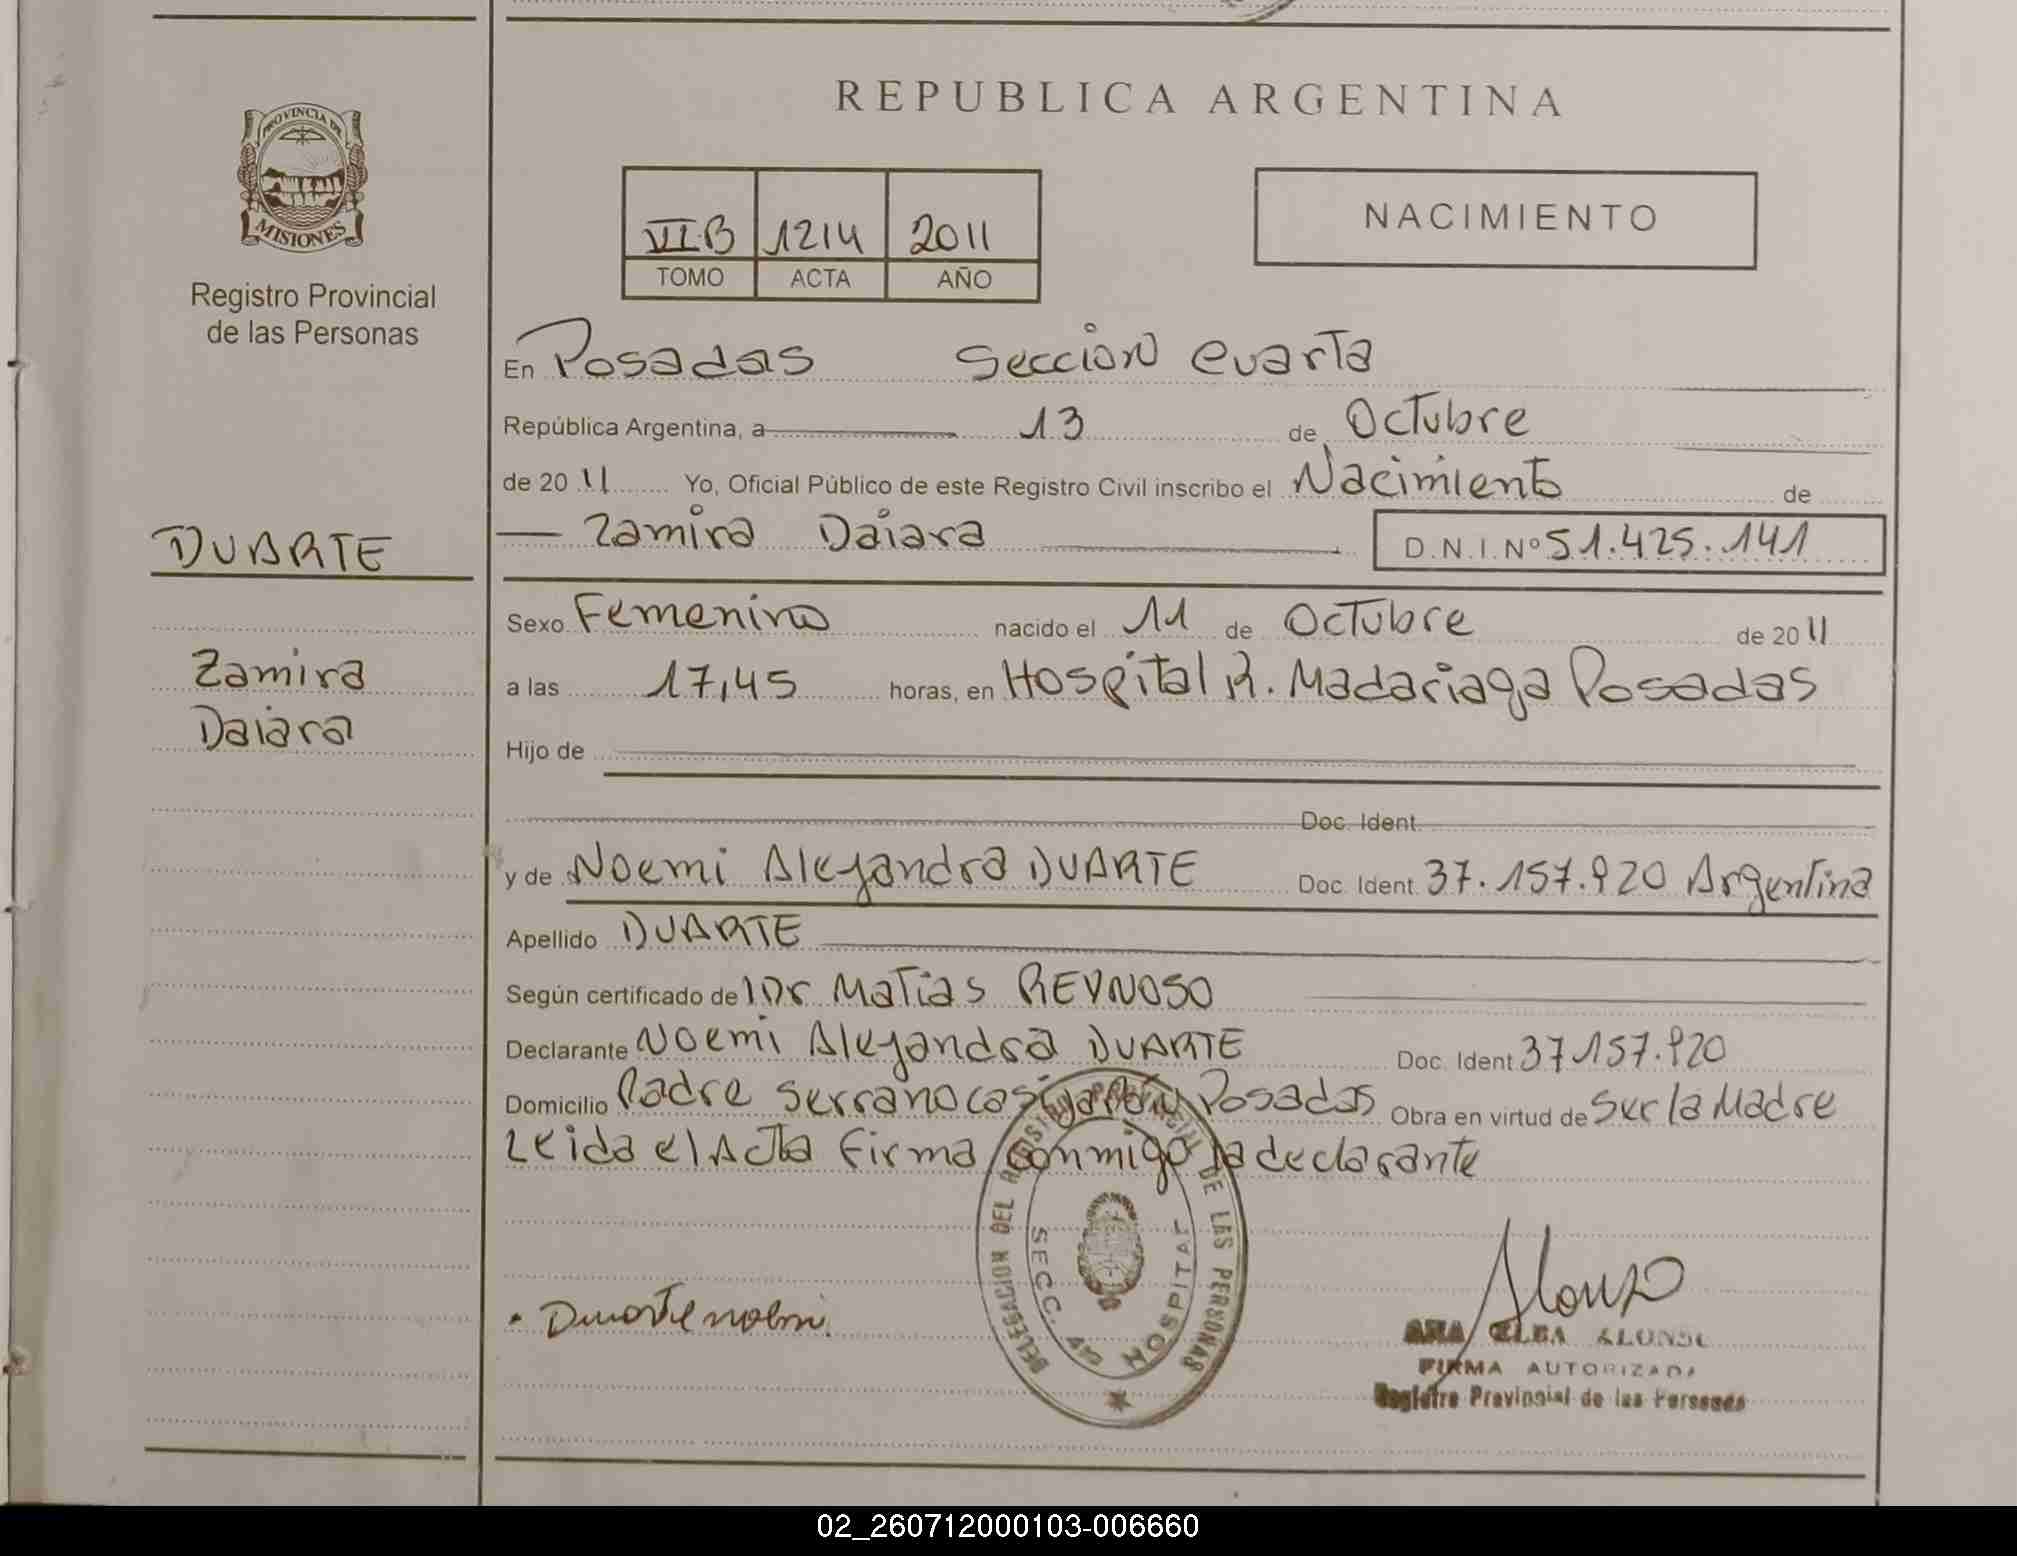 REPUBLICA ARGENTINA
PROVINCIA DE
MISIONES
Registro Provincial
de las Personas
VI.B 1214 2011
TOMO ACTA AÑO
NACIMIENTO
En Posadas Sección Cuarta
República Argentina, a 13 de Octubre
de 20 11 Yo, Oficial Público de este Registro Civil inscribo el Nacimiento de
DUARTE
Zamira Daiara D.N.I.Nº 51.425.141
Sexo Femenino nacido el 11 de Octubre de 20 11
Zamira
a las 17,45 horas, en Hospital R. Madariaga Posadas
Daiara
Hijo de
Doc. Ident.
y de Noemi Alejandra DUARTE Doc. Ident. 37.157.920 Argentina
Apellido DUARTE
Según certificado de Dr Matias REYNOSO
Declarante Noemi Alejandra DUARTE Doc. Ident. 37157.920
Domicilio Padre Serrano Posadas Obra en virtud de Ser la Madre
Leida el Acta Firma conmigo la declarante
DELEGACION DEL REGISTRO PROVINCIAL DE LAS PERSONAS
SECC. HOSPITAL
Duarte noemi.
Alonso
ANA ELBA ALONSO
FIRMA AUTORIZADA
Registro Provincial de las Personas
02_260712000103-006660